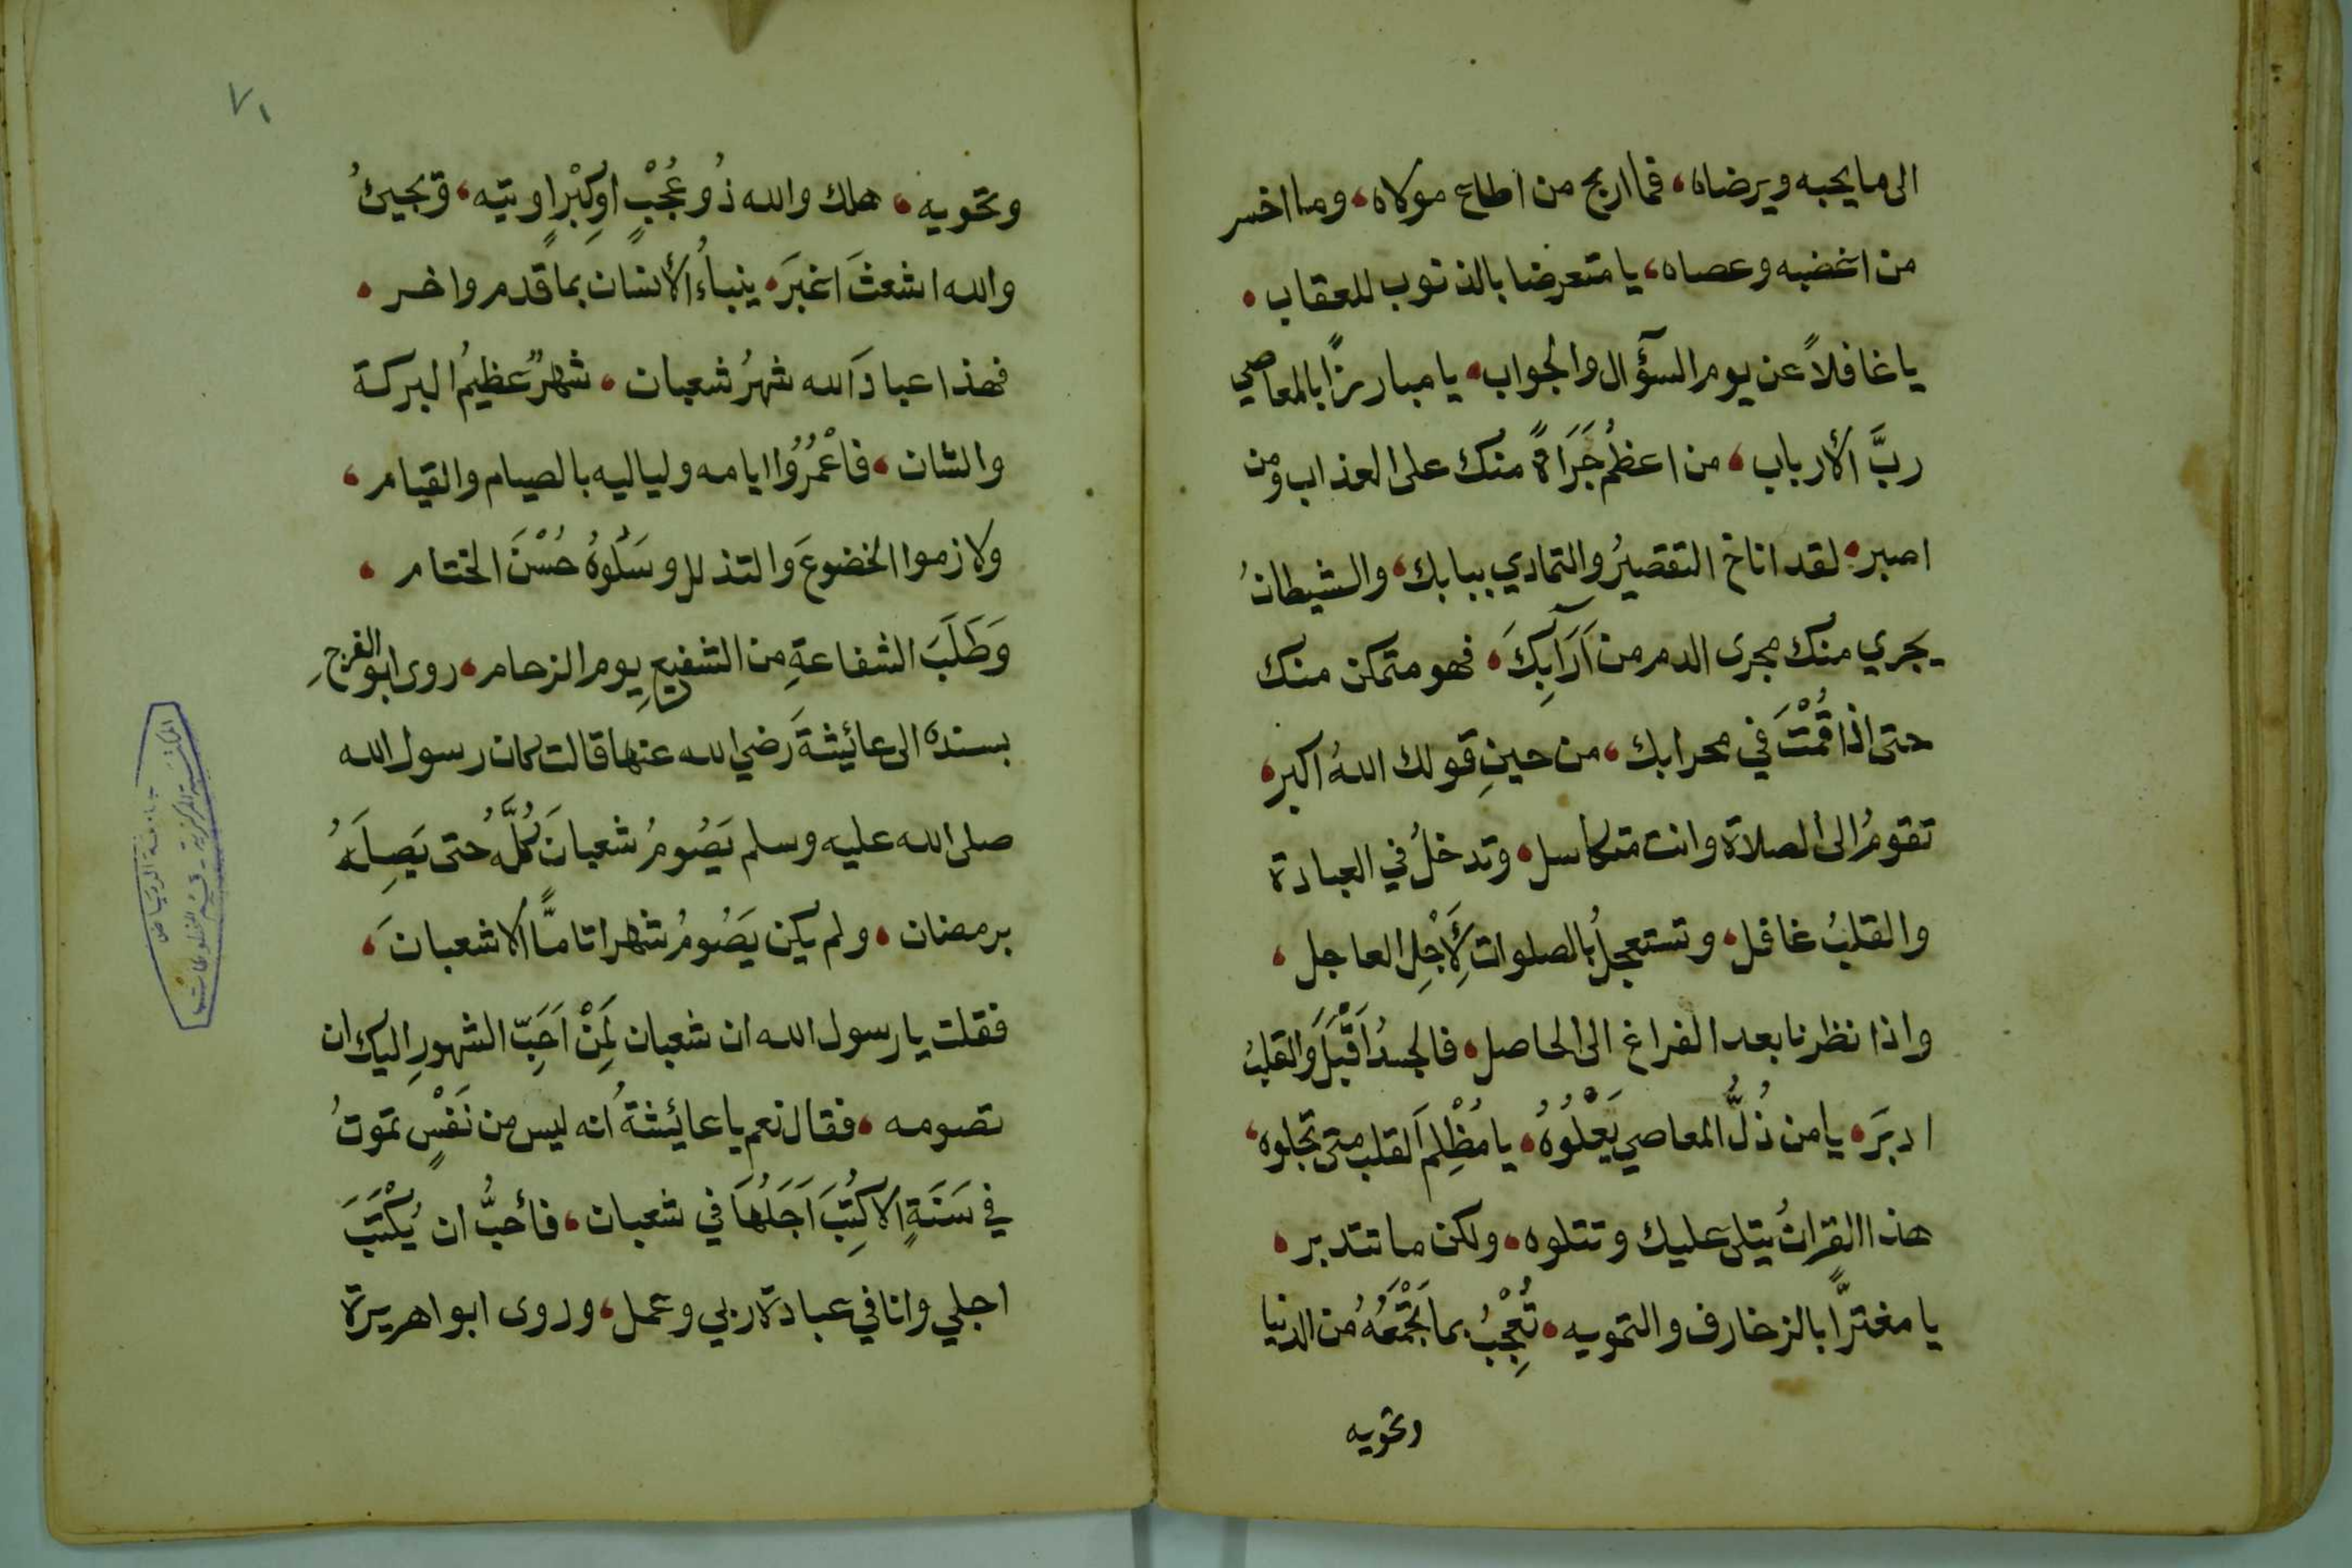 الى ما يحبه ويرضاه، فما اربح من اطاع مولاه، وما اخسر
من اغضبه وعصاه، يا متعرضا بالذنوب للعقاب،
يا غافلاً عن يوم السؤآل والجواب، يا مبارزًا بالمعاصي
ربَّ الأرباب، من اعظمُ جَرَاةً منك على العذاب ومن
اصبر، لقد اناخ التقصيرُ والتمادي ببابك، والشيطانُ
يجري منك مجرى الدم من آرَابِكَ، فهو متمكن منك
حتى اذا قُمْتَ في محرابك، من حينِ قولك اللهُ اكبر،
تقومُ الى الصلاة وانت متكاسل، وتدخلُ في العبادة
والقلبُ غافل، وتستعجلُ بالصلوات لِأَجْلِ العاجل،
واذا نظرنا بعد الفراغ الى الحاصل، فالجسدُ اَقْبَلَ والقلبُ
ادبَرَ، يا من ذُلُّ المعاصي يَعْلُوُهُ، يا مُظْلِمَ القلب متى تجلوه،
هذا القرانُ يتلى عليك وتتلوه، ولكن ما تتدبر،
يا مغترًّا بالزخارف والتمويه، تُعْجِبُ بما تَجْمَعُهُ من الدنيا
وتحويه
٧١
وتحويه، هلك والله ذُو عُجْبٍ اوكِبْرٍ او تيه، ويجيئُ
والله اشعثَ اغبَرَ، ينباءُ الأنسان بما قدم واخر،
فهذا عبادَ الله شهرُ شعبان، شهرٌ عظيمُ البركة
والشان، فاعْمُرُوُا ايامه ولياليه بالصيام والقيام،
ولازموا الخضوعَ والتذلل وسَلُوهُ حُسْنَ الختام،
وَطَلَبَ الشفاعةِ من الشفيعِ يوم الزحام، روى ابو الفرجِ
بسنده الى عائيشةَ رضي الله عنها قالت كان رسول الله
صلى الله عليه وسلم يَصُومُ شعبانَ كُلَّهُ حتى يَصِلَهُ
برمضان، ولم يكن يَصُومُ شهرا تامًّا الا شعبانَ،
فقلت يا رسول الله ان شعبان لَمِنْ اَحَبِّ الشهورِ اليك ان
تصومه، فقال نعم يا عائيشةُ انه ليس من نَفْسٍ تموتُ
في سَنَةٍ الا كُتِبَ اَجَلُهَا في شعبان، فأحبُّ ان يُكْتَبَ
اجلي وانا في عبادة ربي وعمل، وروى ابوا هريرة
جامعة الرياض
المكتبة المركزية - قسم المخطوطات